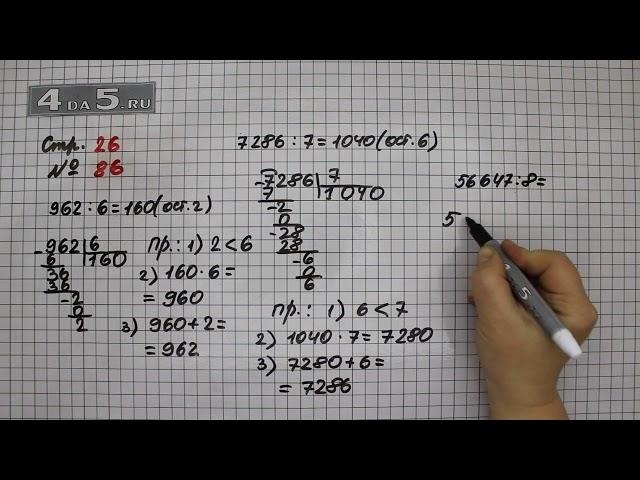 4 DA 5.RU
Стр. 26
№ 86
962 : 6 = 160 (ост. 2)
- 962 | 6
6 160
36
36
- 2
0
2
Пр.: 1) 2 < 6
2) 160 · 6 =
= 960
3) 960 + 2 =
= 962
7286 : 7 = 1040 (ост. 6)
- 7286 | 7
7 1040
- 2
0
- 28
28
- 6
0
6
Пр.: 1) 6 < 7
2) 1040 · 7 = 7280
3) 7280 + 6 =
= 7286
56647 : 8 =
5